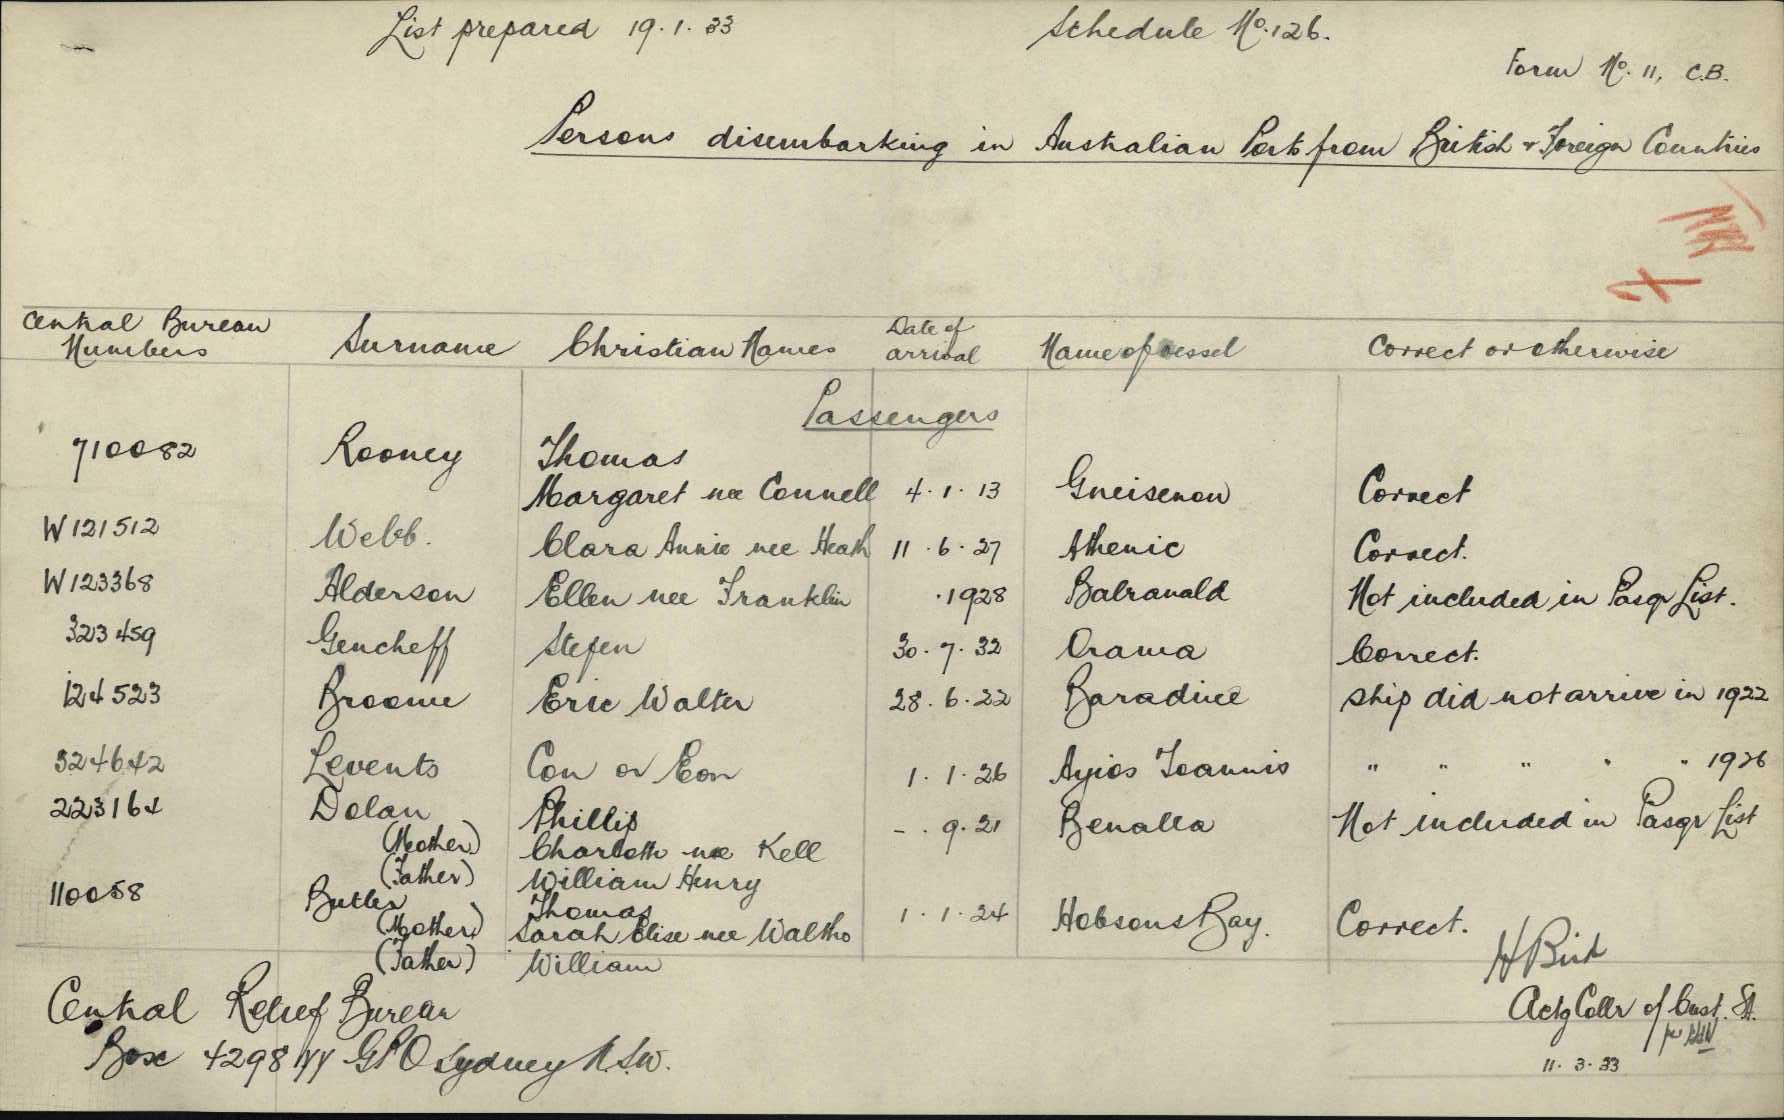 List prepared 19.1.33 Schedule No. 126.
Form No. 11, C.B.
Persons disembarking in Australian Ports from British & Foreign Countries
Central Bureau Numbers Surname Christian Names Date of arrival Name of vessel Correct or otherwise
Passengers
710082 Rooney Thomas
Margaret nee Connell 4.1.13 Gneisenau Correct
W 121512 Webb. Clara Annie nee Heath 11.6.27 Athenic Correct.
W 123368 Alderson Ellen nee Franklin .1928 Balranald Not included in Pasgr List.
323459 Gencheff Stefen 30.7.32 Orama Correct.
124523 Broome Eric Walter 28.6.22 Baradine Ship did not arrive in 1922
324642 Levents Con or Eon 1.1.26 Ayios Ioannis " " " " " 1926
223164 Dolan Phillip -.9.21 Benalla Not included in Pasgr List
(Mother) Charlotte nee Kell
(Father) William Henry
110058 Butler Thomas 1.1.24 Hobsons Bay. Correct.
(Mother) Sarah Elise nee Waltho
(Father) William
H Bird
Central Relief Bureau
Actg Collr of Cust.
Box 4298 YY GPO Sydney N.S.W.
11.3.33